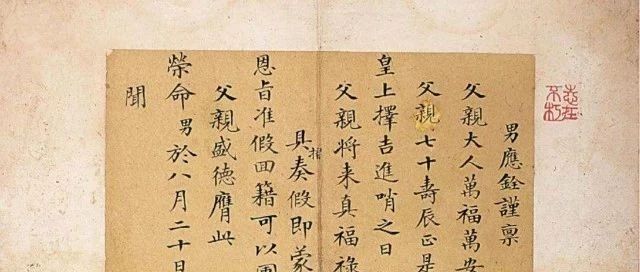 男應銓謹稟
父親大人萬福萬安
父親七十壽辰正是
皇上擇吉進哨之日
父親將来真福祿
具摺奏假即蒙
恩旨准假回籍可以
父親盛德膺此
榮命男於八月二十日
聞